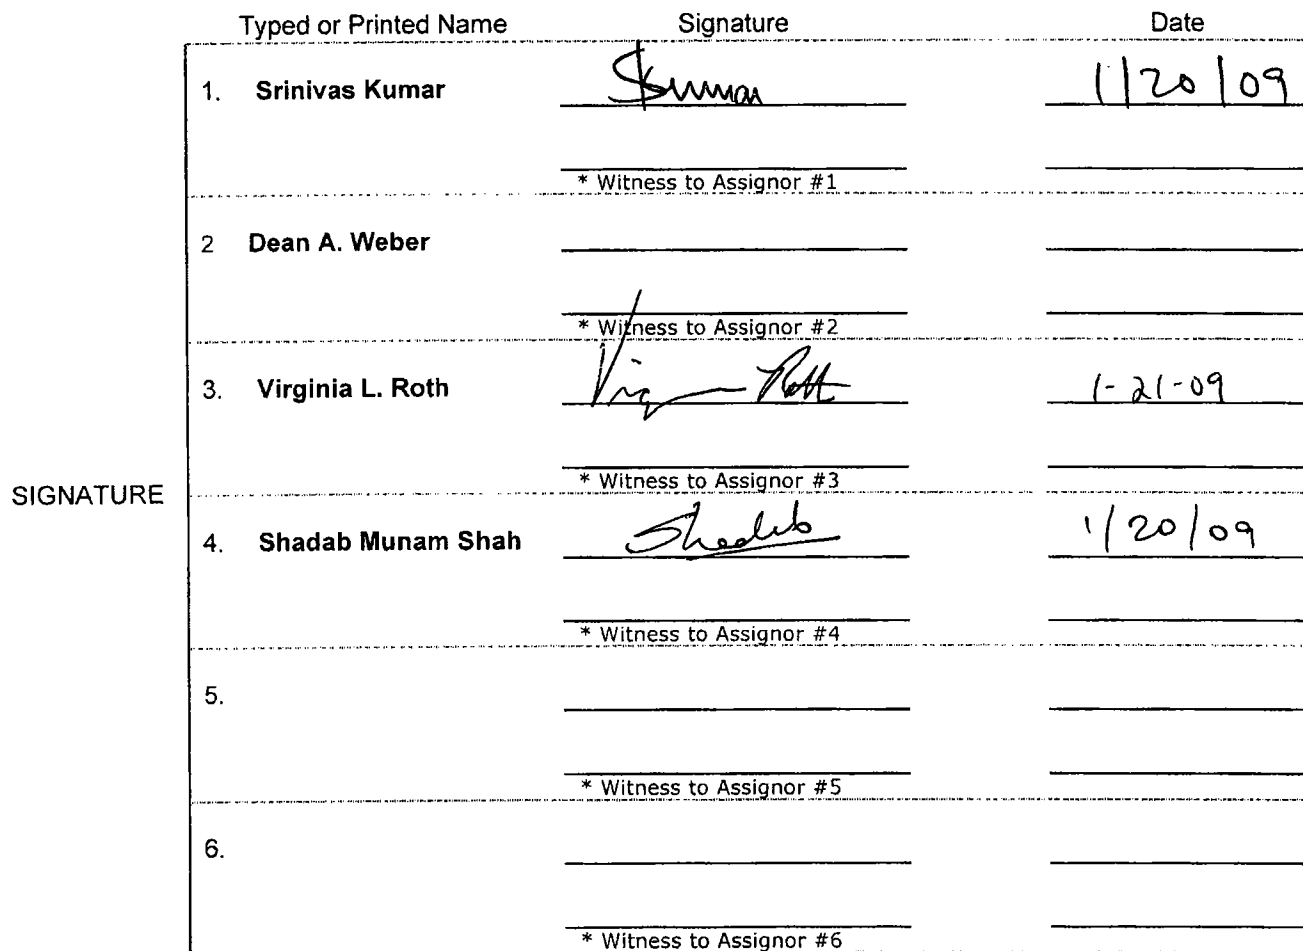 Typed or Printed Name Signature Date
1. Srinivas Kumar SKumar 1/20/09
* Witness to Assignor #1
2 Dean A. Weber
* Witness to Assignor #2
3. Virginia L. Roth Virginia Roth 1-21-09
* Witness to Assignor #3
SIGNATURE
4. Shadab Munam Shah Shadab 1/20/09
* Witness to Assignor #4
5.
* Witness to Assignor #5
6.
* Witness to Assignor #6